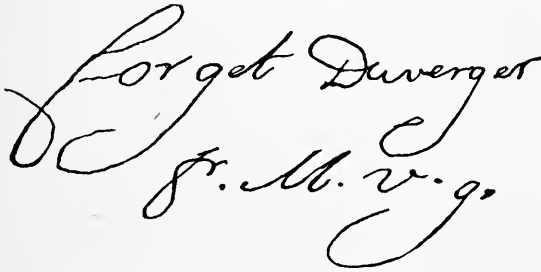 forget Duverger
pr. M. v. g.